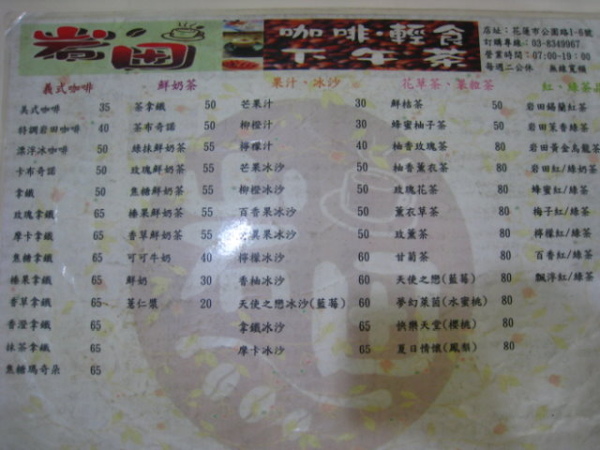 岩田
咖啡·輕食
下午茶
店址：花蓮市公園路1-6號
訂購專線：03-8349967
營業時間：07:00-19:00
每週二公休 無線寬頻
義式咖啡
美式咖啡 35
特調岩田咖啡 40
漂浮冰咖啡 50
卡布奇諾 50
拿鐵 50
玫瑰拿鐵 65
摩卡拿鐵 65
焦糖拿鐵 65
榛果拿鐵 65
香草拿鐵 65
香澄拿鐵 65
抹茶拿鐵 65
焦糖瑪奇朵 65
鮮奶茶
茶拿鐵 50
茶布奇諾 50
綠抹鮮奶茶 55
玫瑰鮮奶茶 55
焦糖鮮奶茶 55
榛果鮮奶茶 55
香草鮮奶茶 55
可可牛奶 40
鮮奶 30
薏仁漿 20
果汁、冰沙
芒果汁 30
柳橙汁 30
檸檬汁 40
芒果冰沙 50
柳橙冰沙 50
百香果冰沙 50
冰沙 50
檸檬冰沙 60
香柚冰沙 60
天使之戀冰沙(藍莓) 60
拿鐵冰沙 65
摩卡冰沙 65
花草茶、果粒茶
鮮桔茶 50
蜂蜜柚子茶 50
柚香玫瑰茶 80
柚香薰衣茶 80
玫瑰花茶 80
薰衣草茶 80
玫薰茶 80
甘菊茶 80
天使之戀(藍莓) 80
夢幻萊茵(水蜜桃) 80
快樂天堂(櫻桃) 80
夏日情懷(鳳梨) 80
紅、綠茶
岩田錫蘭紅茶
岩田茉香綠茶
岩田黃金烏龍茶
岩田紅/綠奶茶
蜂蜜紅/綠茶
梅子紅/綠茶
檸檬紅/綠茶
百香紅/綠茶
飄浮紅/綠茶